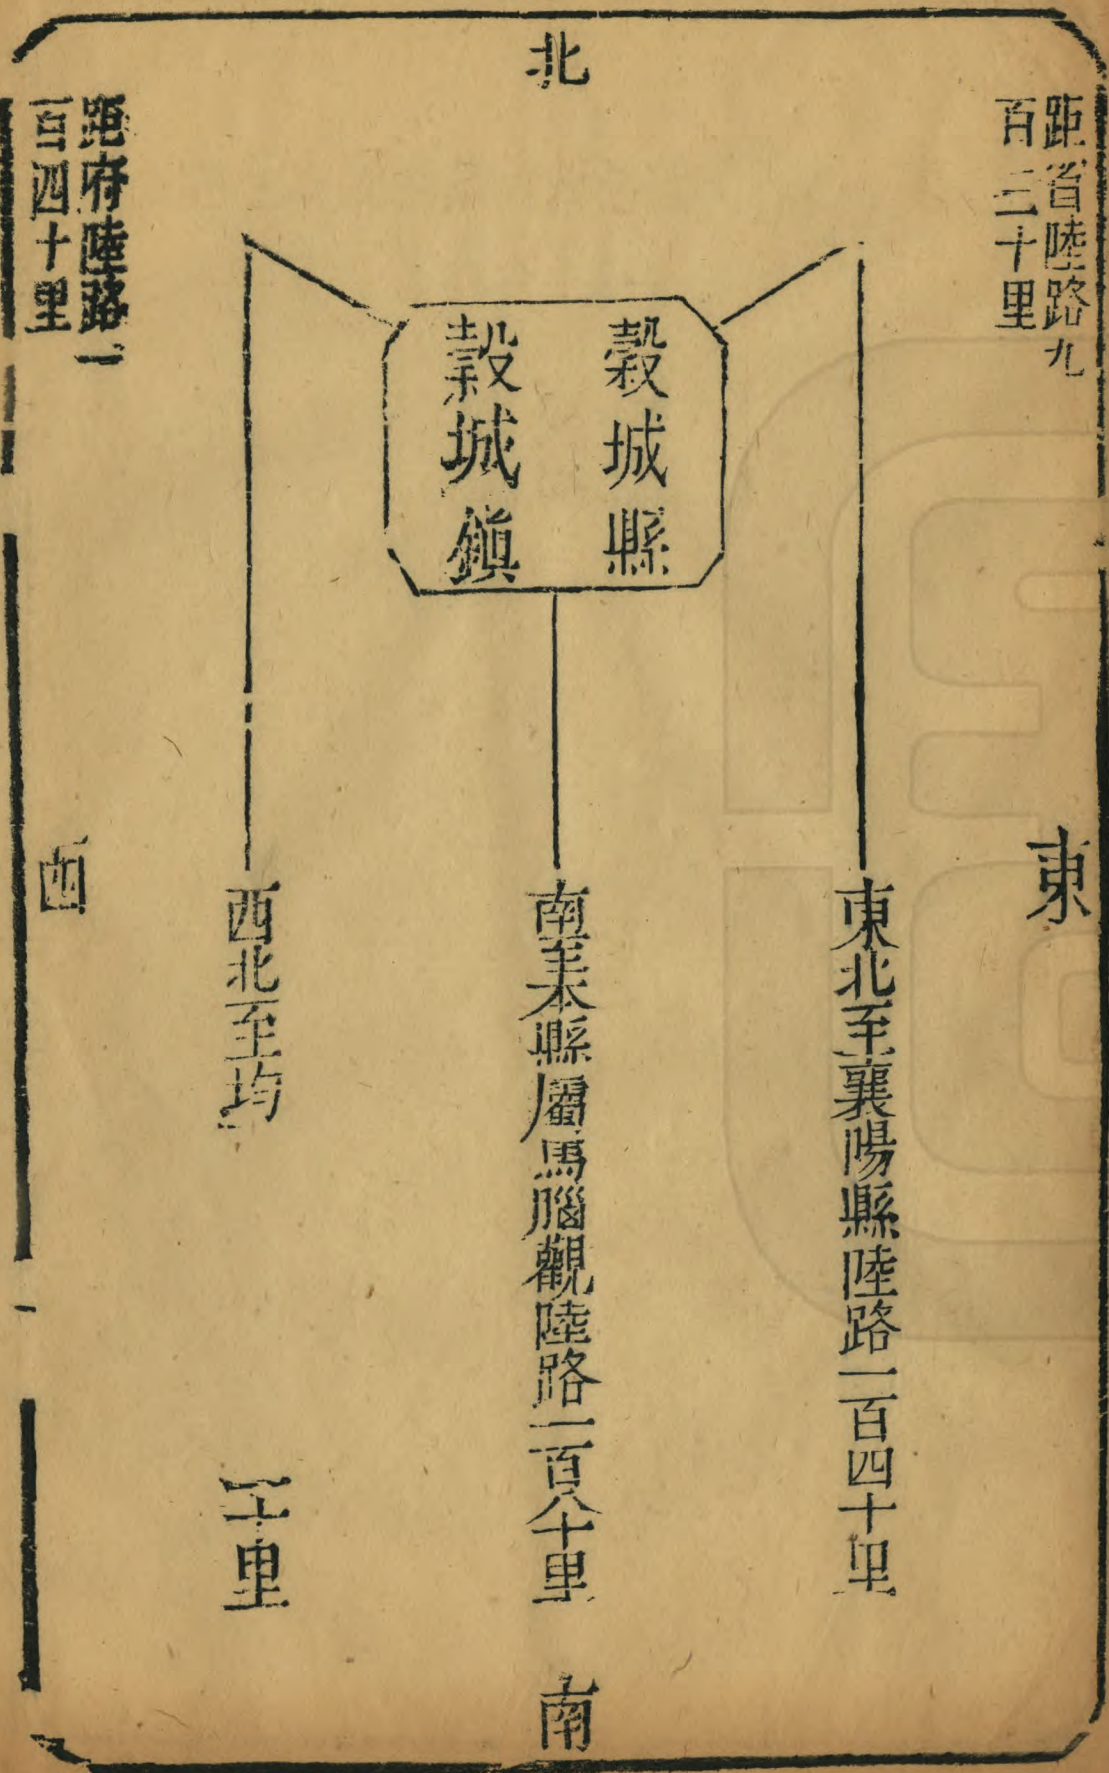 北
距省陸路九
百三十里
東
榖城縣
榖城鎮
東北至襄陽縣陸路一百四十里
南至本縣屬馬腦觀陸路一百八十里
西北至均
十里
距府陸路一
百四十里
西
南